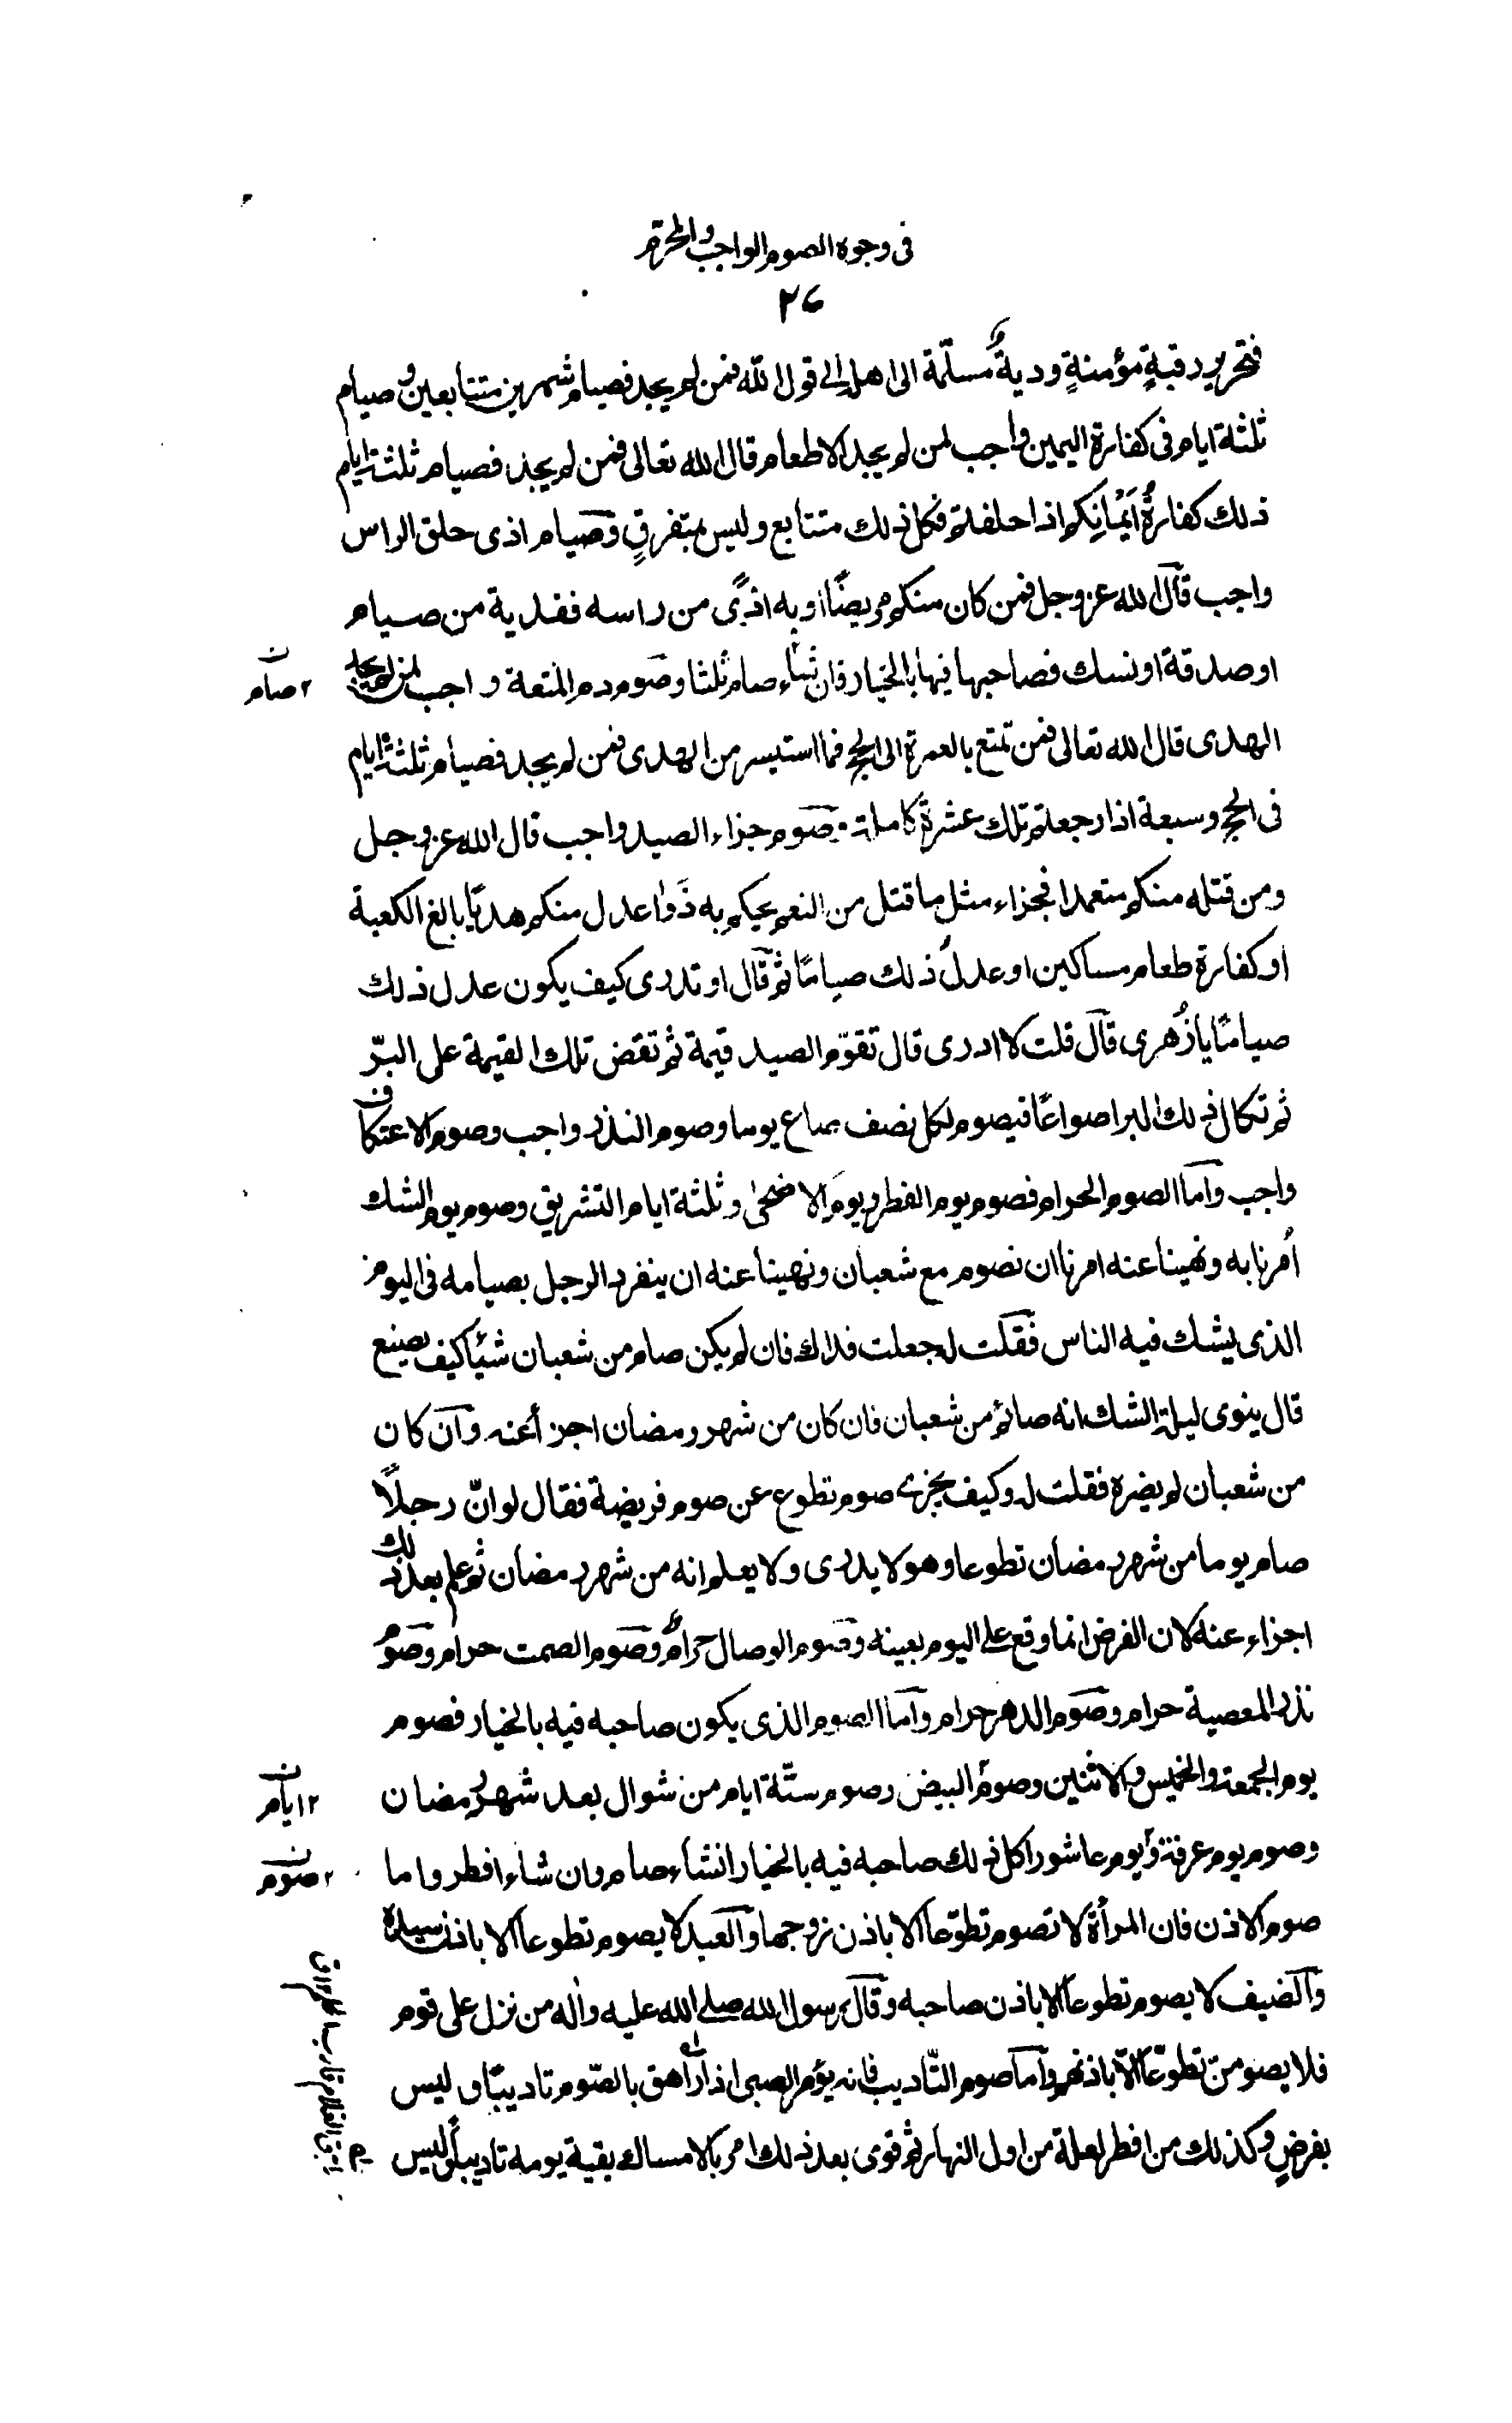 فى وجوه الصوم الواجب والمحرم
٢٦
فتحرير رقبةٍ مؤمنةٍ وديةٌ مسلّمة الى اهله الى قول الله فمن لم يجد فصيام شهرين متتابعين وصيام
ثلثة ايام فى كفارة اليمين واجب لمن لم يجد الاطعام قال الله تعالى فمن لم يجد فصيام ثلثة ايام
ذلك كفارةُ اَيْمٰانِكم اذا حلفتم فكل ذلك متتابع وليس بمتفرقٍ وصيام اذى حلق الراس
واجب قال الله عز وجل فمن كان منكم مريضًا او به اذًى من راسه ففدية من صيام
او صدقة او نسك فصاحبها فيها بالخيار فان شاء صام ثلثا وصوم دم المتعة واجب لمن لم يجد
الهدى قال الله تعالى فمن تمتع بالعمرة الى الحج فما استيسر من الهدى فمن لم يجد فصيام ثلثة ايام
فى الحج وسبعة اذا رجعتم تلك عشرة كاملة وصوم جزاء الصيد واجب قال الله عز وجل
ومن قتله منكم متعمدا فجزاء مثل ما قتل من النعم يحكم به ذَوٰا عدل منكم هديًا بالغ الكعبة
او كفارة طعام مساكين او عدل ذلك صيامًا ثم قال او تدرى كيف يكون عدل ذلك
صيامًا يا زُهرى قال قلت لا ادرى قال تقوّم الصيد قيمة ثم تفض تلك القيمة على البرّ
ثم تكال ذلك البر اصواعًا فيصوم لكل نصف صاع يوما وصوم النذر واجب وصوم الاعتكاف
واجب واما الصوم الحرام فصوم يوم الفطر ويوم الاضحىٰ وثلثة ايام التشريق وصوم يوم الشك
اُمرنا به ونهينا عنه امرنا ان نصوم مع شعبان ونهينا عنه ان ينفرد الرجل بصيامه فى اليوم
الذى يشك فيه الناس فقلت له جعلت فداك فان لم يكن صام من شعبان شيئا كيف يصنع
قال ينوى ليلة الشك انه صائم من شعبان فان كان من شهر رمضان اجزأ عنه وان كان
من شعبان لم يضره فقلت له وكيف يجزى صوم تطوع عن صوم فريضة فقال لو انّ رجلًا
صام يوما من شهر رمضان تطوعا وهو لا يدرى ولا يعلم انه من شهر رمضان ثم علم بعد ذلك
اجزاء عنه لان الفرض انما وقع على اليوم بعينه وصوم الوصال حرامٌ وصوم الصمت حرام وصوم
نذر المعصية حرام وصوم الدهر حرام واما الصوم الذى يكون صاحبه فيه بالخيار فصوم
يوم الجمعة والخميس والاثنين وصوم البيض وصوم ستّة ايام من شوال بعد شهر رمضان
وصوم يوم عرفة ويوم عاشورا كل ذلك صاحبه فيه بالخيار انشاء صام وان شاء افطر واما
صوم الاذن فان المرأة لا تصوم تطوّعا الا باذن زوجها والعبد لا يصوم تطوعا الا باذن سيده
والضيف لا يصوم تطوعا الا باذن صاحبه وقال رسول الله صلى الله عليه واله من نزل على قوم
فلا يصومنّ تطوّعا الّا باذنهم واما صوم التّاديب فانه يؤمر الصبى اذا راهق بالصّوم تاديبًا وليس
بفرضٍ وكذلك من افطر لعلة من اول النهار ثم قوى بعد ذلك امر بالامساك بقية يومه تاديبا وليس
٢ صام ن
٢ ايام ن
٢ صوم ن